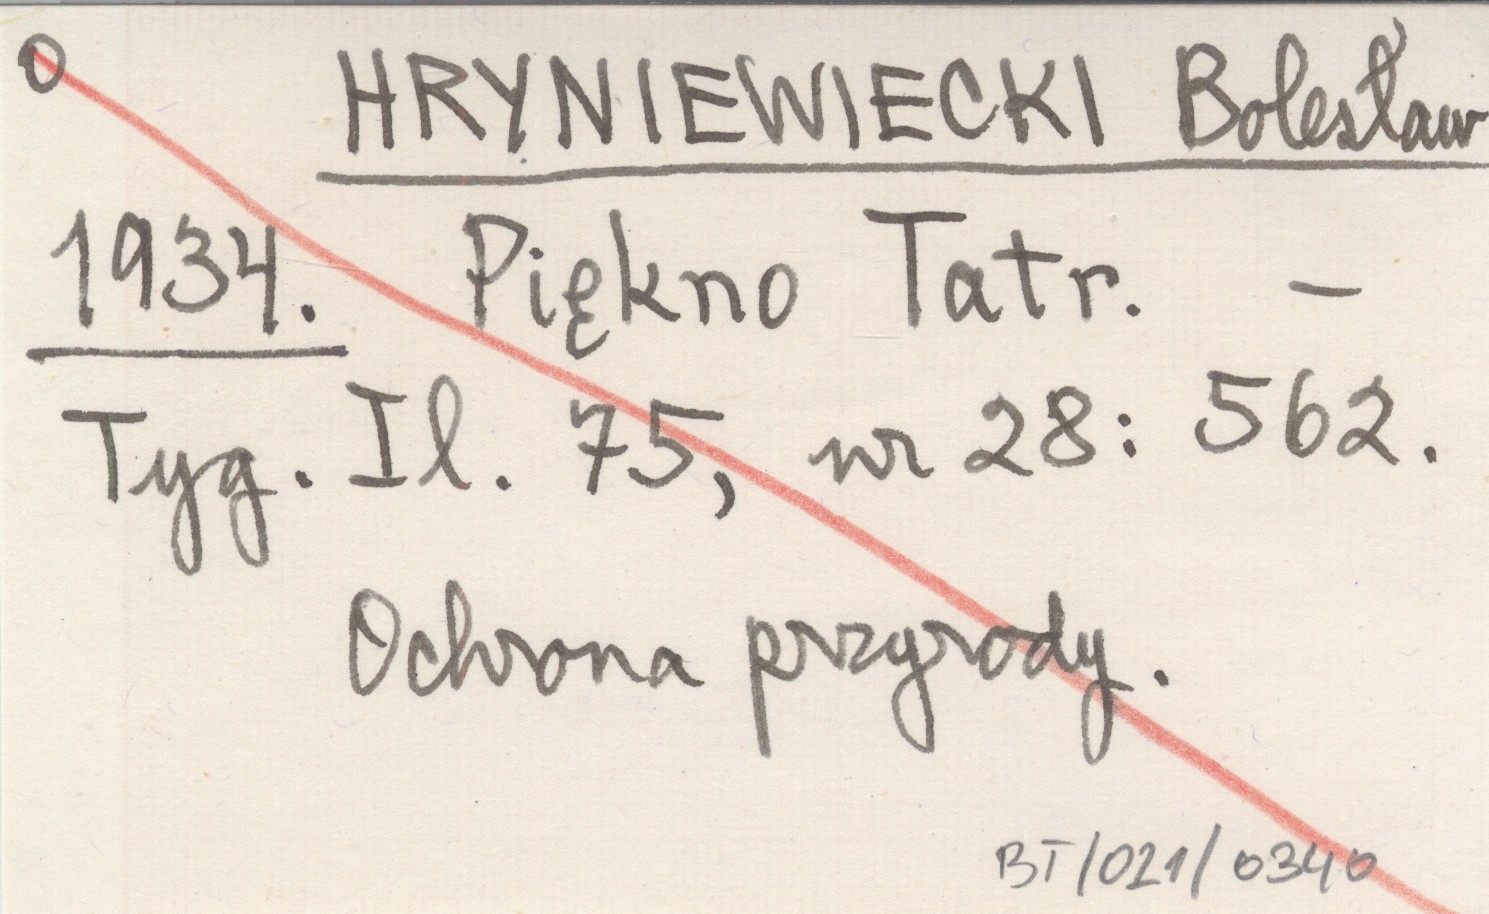 O HRYNIEWIECKI Bolesław
1934. Piękno Tatr. –
Tyg. Il. 75, nr 28: 562.
Ochrona przyrody.
BT/021/0340